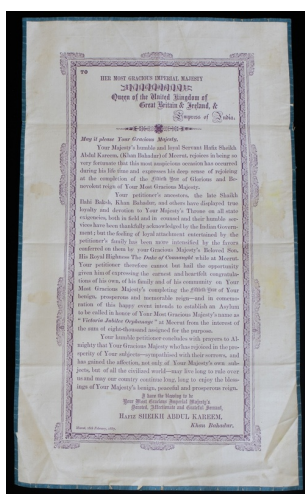 TO
HER MOST GRACIOUS IMPERIAL MAJESTY
Queen of the United Kingdom of
Great Britain & Ireland, &
Empress of India.
May it please Your Gracious Majesty,
Your Majesty's humble and loyal Servant Hafiz Sheikh
Abdul Kareem, (Khan Bahadur) of Meerut, rejoices in being so
very fortunate that this most auspicious occasion has occurred
during his life time and expresses his deep sense of rejoicing
at the completion of the Year of Glorious and Be-
nevolent reign of Your Most Gracious Majesty.
Your petitioner's ancestors, the late Sheikh
Ilahi Baksh, Khan Bahadur, and others have displayed true
loyalty and devotion to Your Majesty's Throne on all state
exigencies, both in field and in and their humble ser-
vices have been thankfully acknowledged by the Indian Govern-
ment; but the feeling of loyal attachment entertained by the
petitioner's family has been more intensified by the favors
conferred on them by your Gracious Majesty's Beloved Son,
His Royal Highness The Duke of Connaught while at Meerut.
Your petitioner therefore cannot but hail the opportunity
given him of expressing the earnest and heartfelt congratula-
tions of his own, of his family and of his community on Your
Most Gracious Majesty's completing the Year of Your
benign, prosperous and memorable reign—and in commemo-
ration of this happy event intends to establish an Asylum
to be called in honor of Your Most Gracious Majesty's name as
"Victoria Jubilee Orphanage" at Meerut from the interest of
the sum of rupees assigned for the purpose.
Your humble petitioner concludes with prayers to Al-
mighty that Your Gracious Majesty who has rejoiced in the pros-
perity of Your subjects—sympathised with their sorrows, and
has gained the affection, not only of Your Majesty's own sub-
jects, but of all the civilized world—may live long to rule over
us and may our country continue long, long to enjoy the bless-
ings of Your Majesty's benign, peaceful and prosperous reign.
I have the blessing to be
Your Most Gracious Imperial Majesty's
Devoted, Affectionate and Grateful Servant,
HAFIZ SHEIKH ABDUL KAREEM,
Khan Bahadur.